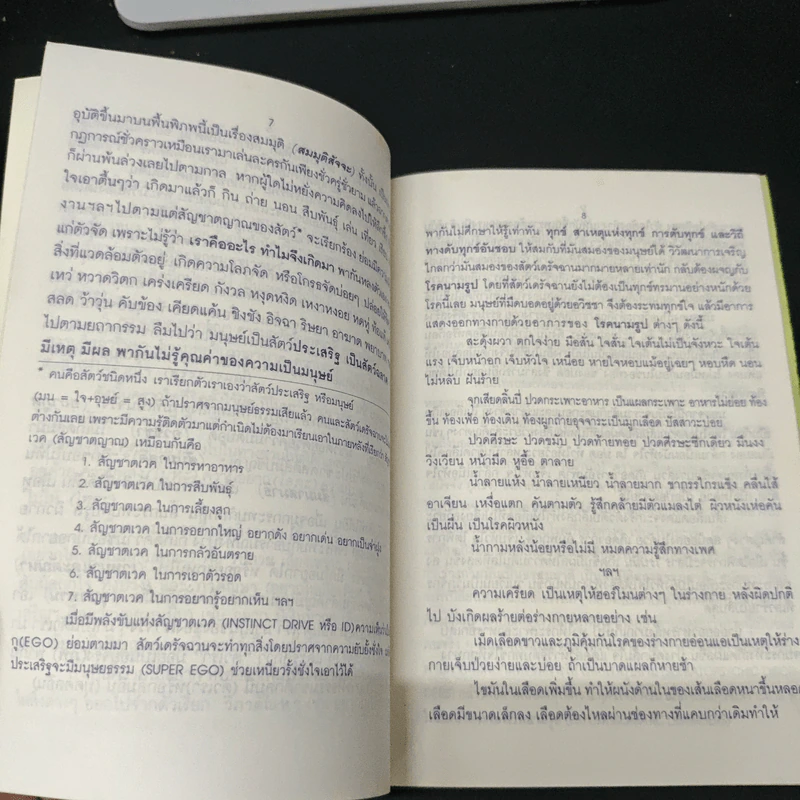 7
อุบัติขึ้นมาบนพื้นพิภพนี้เป็นเรื่องสมมุติ (สมมุติสัจจะ) ทั้งนั้น
กฎการณ์ชั่วคราวเหมือนเรามาเล่นละครกันเพียงชั่วครู่ชั่วยาม
ก็ผ่านพ้นล่วงเลยไปตามกาล หากผู้ใดไม่หยั่งความคิดลงไปให้
ใจเอาตื้นๆว่า เกิดมาแล้วก็ กิน ถ่าย นอน สืบพันธุ์ เล่น เที่ยว
งานฯลฯไปตามแต่สัญชาตญาณของสัตว์* จะเรียกร้อง ย่อม
แก่ตัวจัด เพราะไม่รู้ว่า เราคืออะไร ทำไมจึงเกิดมา พากันหลง
สิ่งที่แวดล้อมตัวอยู่ เกิดความโลภจัด หรือโกรธจัดบ่อยๆ ปล่อยให้
เหว่ หวาดวิตก เคร่งเครียด กังวล หงุดหงิด เหงาหงอย หดหู่ ท้อแท้
สลด ว้าวุ่น คับข้อง เคียดแค้น ชิงชัง อิจฉา ริษยา อาฆาต พยาบาท
ไปตามยถากรรม ลืมไปว่า มนุษย์เป็นสัตว์ประเสริฐ เป็นสัตว์ฉลาด
มีเหตุ มีผล พากันไม่รู้คุณค่าของความเป็นมนุษย์
* คนคือสัตว์ชนิดหนึ่ง เราเรียกตัวเราเองว่าสัตว์ประเสริฐ หรือมนุษย์
(มน = ใจ+อุษย์ = สูง) ถ้าปราศจากมนุษย์ธรรมเสียแล้ว คนและสัตว์เดรัจฉานจะไม่
ต่างกันเลย เพราะมีความรู้ติดตัวมาแต่กำเนิดไม่ต้องมาเรียนเอาในภายหลังที่เรียกว่า
เวค (สัญชาตญาณ) เหมือนกันคือ
1. สัญชาตเวค ในการหาอาหาร
2. สัญชาตเวค ในการสืบพันธุ์
3. สัญชาตเวค ในการเลี้ยงลูก
4. สัญชาตเวค ในการอยากใหญ่ อยากดัง อยากเด่น อยากเป็นจ่าฝูง
5. สัญชาตเวค ในการกลัวอันตราย
6. สัญชาตเวค ในการเอาตัวรอด
7. สัญชาตเวค ในการอยากรู้อยากเห็น ฯลฯ
เมื่อมีพลังขับแห่งสัญชาตเวค (INSTINCT DRIVE หรือ ID)
กู(EGO) ย่อมตามมา สัตว์เดรัจฉานจะทำทุกสิ่งโดยปราศจากความยับยั้งชั่งใจ
ประเสริฐจะมีมนุษยธรรม (SUPER EGO) ช่วยเหนี่ยวรั้งชั่งใจเอาไว้ได้
8
พากันไม่ศึกษาให้รู้เท่าทัน ทุกข์ สาเหตุแห่งทุกข์ การดับทุกข์ และวิถี
ทางดับทุกข์อันชอบ ให้สมกับที่มันสมองของมนุษย์ได้ วิวัฒนาการเจริญ
ไกลกว่ามันสมองของสัตว์เดรัจฉานมากมายหลายเท่านัก กลับต้องผจญกับ
โรคนามรูป โดยที่สัตว์เดรัจฉานยังไม่ต้องเป็นทุกข์ทรมานอย่างหนักด้วย
โรคนี้เลย มนุษย์ที่มืดบอดอยู่ด้วยอวิชชา จึงต้องระทมทุกข์ใจ แล้วมีอาการ
แสดงออกทางกายด้วยอาการของ โรคนามรูป ต่างๆ ดังนี้
สะดุ้งผวา ตกใจง่าย มือสั่น ใจสั่น ใจเต้นไม่เป็นจังหวะ ใจเต้น
แรง เจ็บหน้าอก เจ็บหัวใจ เหนื่อย หายใจหอบแม้อยู่เฉยๆ หอบหืด นอน
ไม่หลับ ฝันร้าย
จุกเสียดลิ้นปี่ ปวดกระเพาะอาหาร เป็นแผลกระเพาะ อาหารไม่ย่อย ท้อง
ขึ้น ท้องเฟ้อ ท้องเดิน ท้องผูกถ่ายอุจจาระเป็นมูกเลือด ปัสสาวะบ่อย
ปวดศีรษะ ปวดขมับ ปวดท้ายทอย ปวดศีรษะซีกเดียว มึนงง
วิงเวียน หน้ามืด หูอื้อ ตาลาย
น้ำลายแห้ง น้ำลายเหนียว น้ำลายมาก ขากรรไกรแข็ง คลื่นไส้
อาเจียน เหงื่อแตก คันตามตัว รู้สึกคล้ายมีตัวแมลงไต่ ผิวหนังเห่อคัน
เป็นผื่น เป็นโรคผิวหนัง
น้ำกามหลั่งน้อยหรือไม่มี หมดความรู้สึกทางเพศ
ฯลฯ
ความเครียด เป็นเหตุให้ฮอร์โมนต่างๆ ในร่างกาย หลั่งผิดปกติ
ไป บังเกิดผลร้ายต่อร่างกายหลายอย่าง เช่น
เม็ดเลือดขาวและภูมิคุ้มกันโรคของร่างกายอ่อนแอเป็นเหตุให้ร่าง
กายเจ็บป่วยง่ายและบ่อย ถ้าเป็นบาดแผลก็หายช้า
ไขมันในเลือดเพิ่มขึ้น ทำให้ผนังด้านในของเส้นเลือดหนาขึ้นหลอด
เลือดมีขนาดเล็กลง เลือดต้องไหลผ่านช่องทางที่แคบกว่าเดิมทำให้